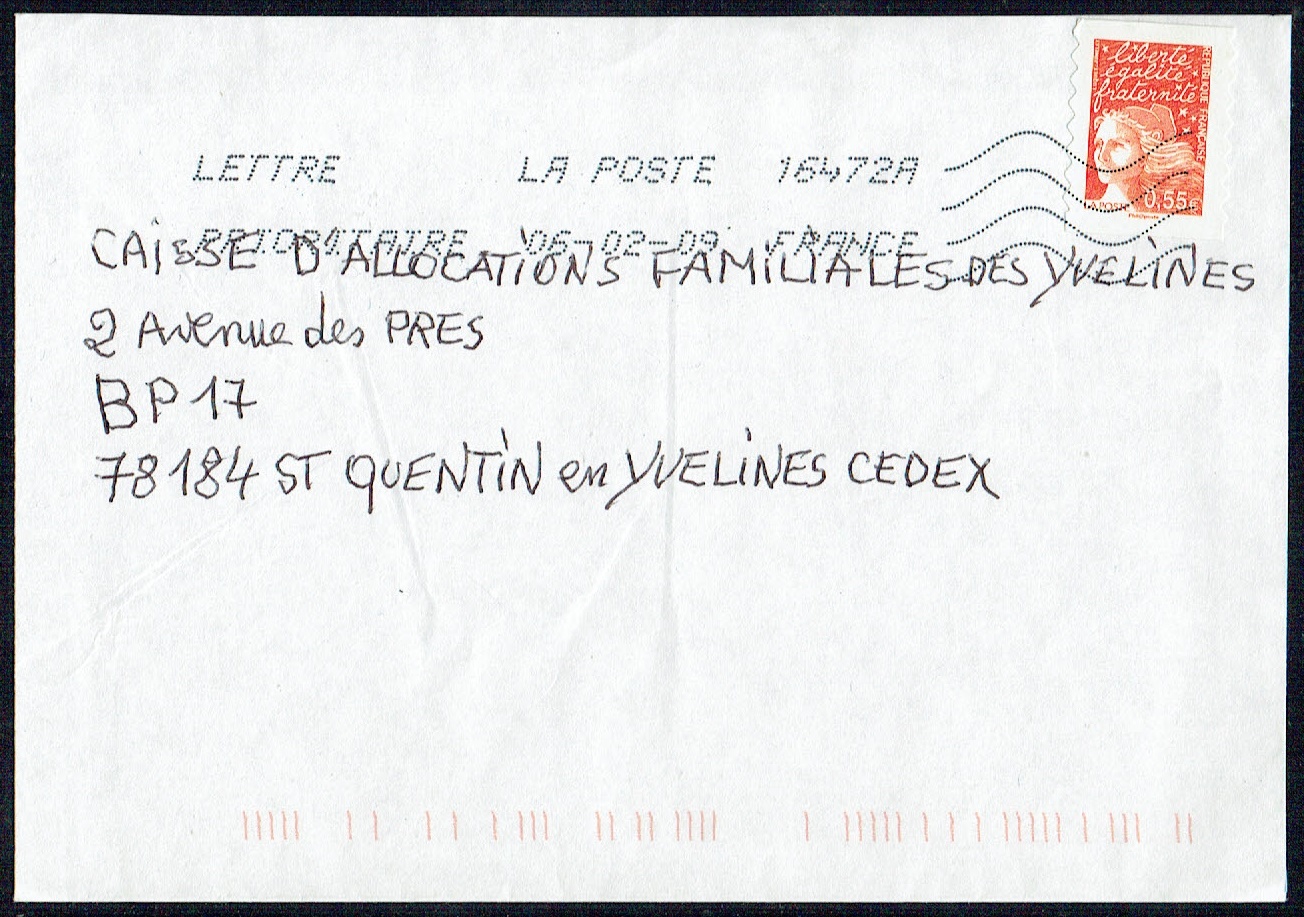 liberté
égalité
fraternité
RÉPUBLIQUE FRANÇAISE
LA POSTE 0,55€
LETTRE LA POSTE 16472A
PRIORITAIRE 06-02-09 FRANCE
CAISSE D'ALLOCATIONS FAMILIALES DES YVELINES
2 Avenue des PRES
BP 17
78184 ST QUENTIN en YVELINES CEDEX